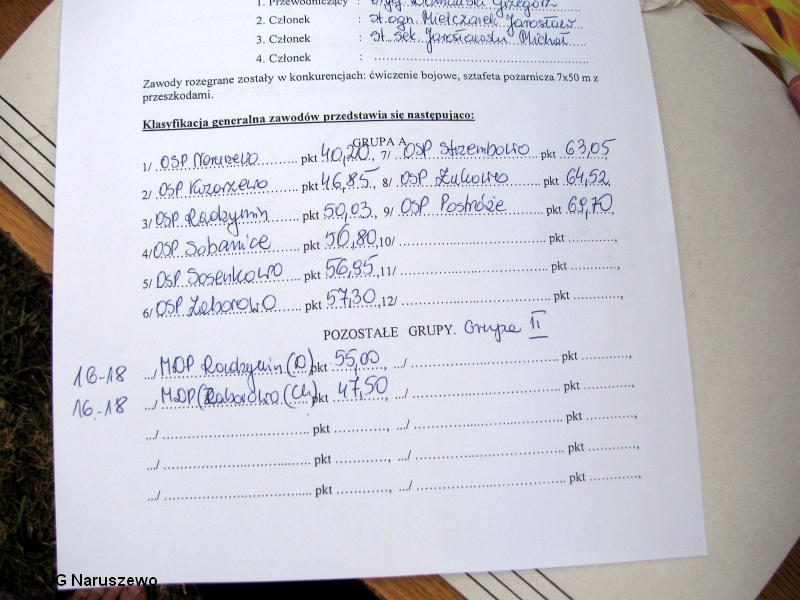 1. Przewodniczący : Grzegorz
2. Członek : st.ogn. Mielczarek Jarosław
3. Członek : st. sek. Michał
4. Członek :
Zawody rozegrane zostały w konkurencjach: ćwiczenie bojowe, sztafeta pożarnicza 7x50 m z
przeszkodami.
Klasyfikacja generalna zawodów przedstawia się następująco:
GRUPA A
1/ OSP Naruszewo pkt 40,20, 7/ OSP Strzembowo pkt 63,05
2/ OSP pkt 46,85, 8/ OSP Żukowo pkt 64,52
3/ OSP Radzymin pkt 50,03, 9/ OSP Postróże pkt 69,70,
4/ OSP Sobanice pkt 50,80, 10/ pkt ,
5/ OSP Sosenkowo pkt 56,95, 11/ pkt ,
6/ OSP Zaborowo pkt 57,30, 12/ pkt ,
POZOSTAŁE GRUPY. Grupa II
16-18 .../ MDP Radzymin (D) pkt 55,00 , .../ pkt ,
16-18 .../ MDP (Zaborowo (Ch) pkt 47,50 , .../ pkt ,
.../ pkt , .../ pkt ,
.../ pkt , .../ pkt ,
.../ pkt , .../ pkt ,
UG Naruszewo